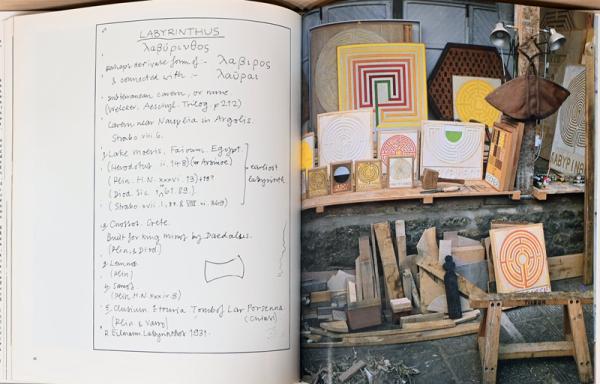 LABYRINTHUS
λαβύρινθος
perhaps derivate form of - λαβιρος
& connected with :- λαῦραι
subterranean cavern, or mine
(Welcker. Aeschyl. Trilog. p 212)
Cavern near Nauplia in Argolis.
Strabo viii. 6.
Lake Moeris, Faioum, Egypt.
(Herodotus ii. 148) (or Arsinoe)
(Plin. H.N. xxxvi. 13)
(Diod. Sic. 61. 89.)
(Strabo xvii.
earliest
labyrinth
Cnossos. Crete.
Built for King Minos by Daedalus.
(Plin. & Diod.)
Lemnos
(Plin)
Samos
(Plin. H.N. xxxiv. 8)
Clusium Etruria Tomb of Lar Porsenna
(Plin. & Varro) (Chiusi)
R. Eilmann Labyrinthos 1931.